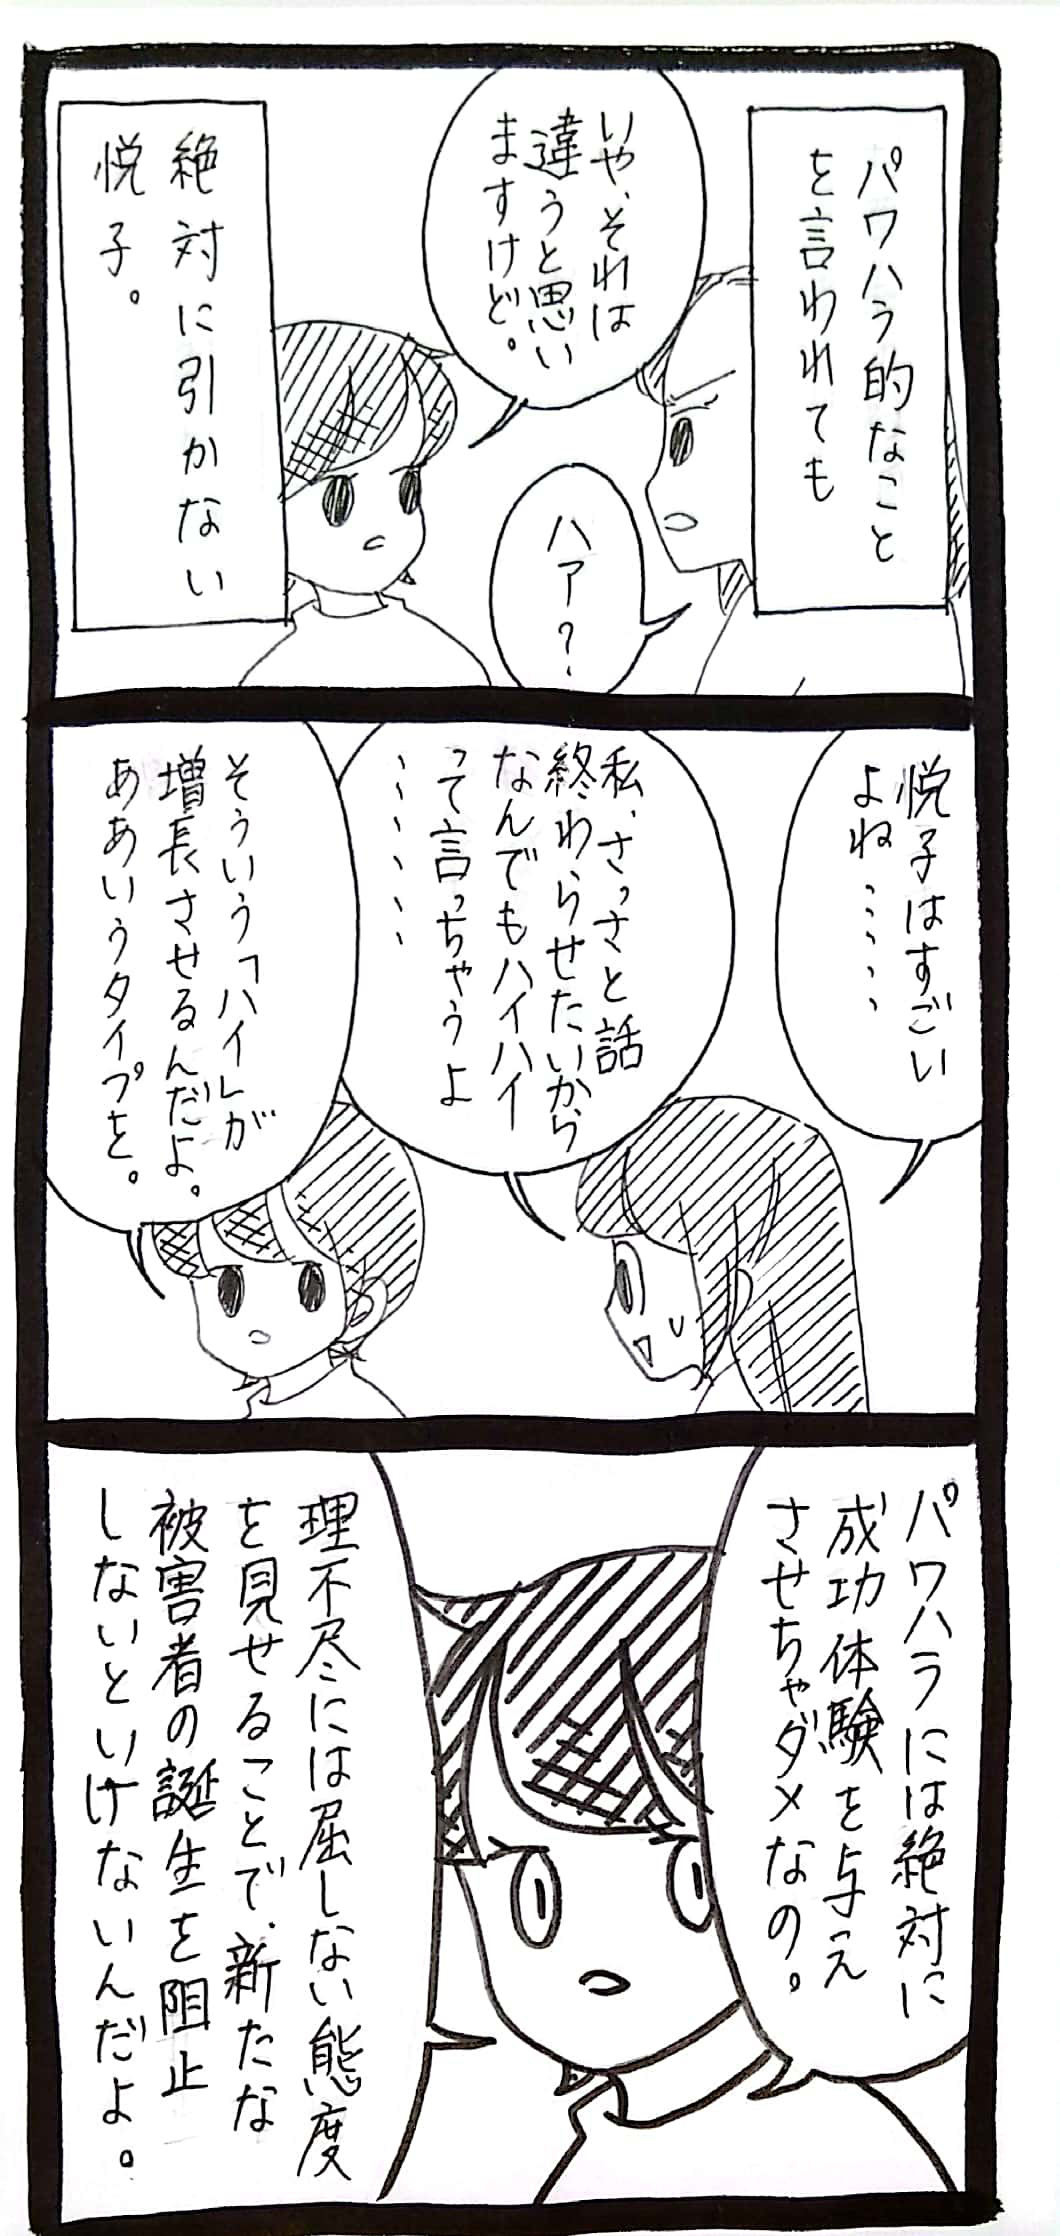 パワハラ的なこと
を言われても
いや、それは
違うと思い
ますけど。
ハァ?
絶対に引かない
悦子。
悦子はすごい
よね……
私、さっさと話
終わらせたいから
なんでもハイハイ
って言っちゃうよ
……
そういう「ハイ」が
増長させるんだよ。
ああいうタイプを。
パワハラには絶対に
成功体験を与え
させちゃダメなの。
理不尽には屈しない態度
を見せることで、新たな
被害者の誕生を阻止
しないといけないんだよ。